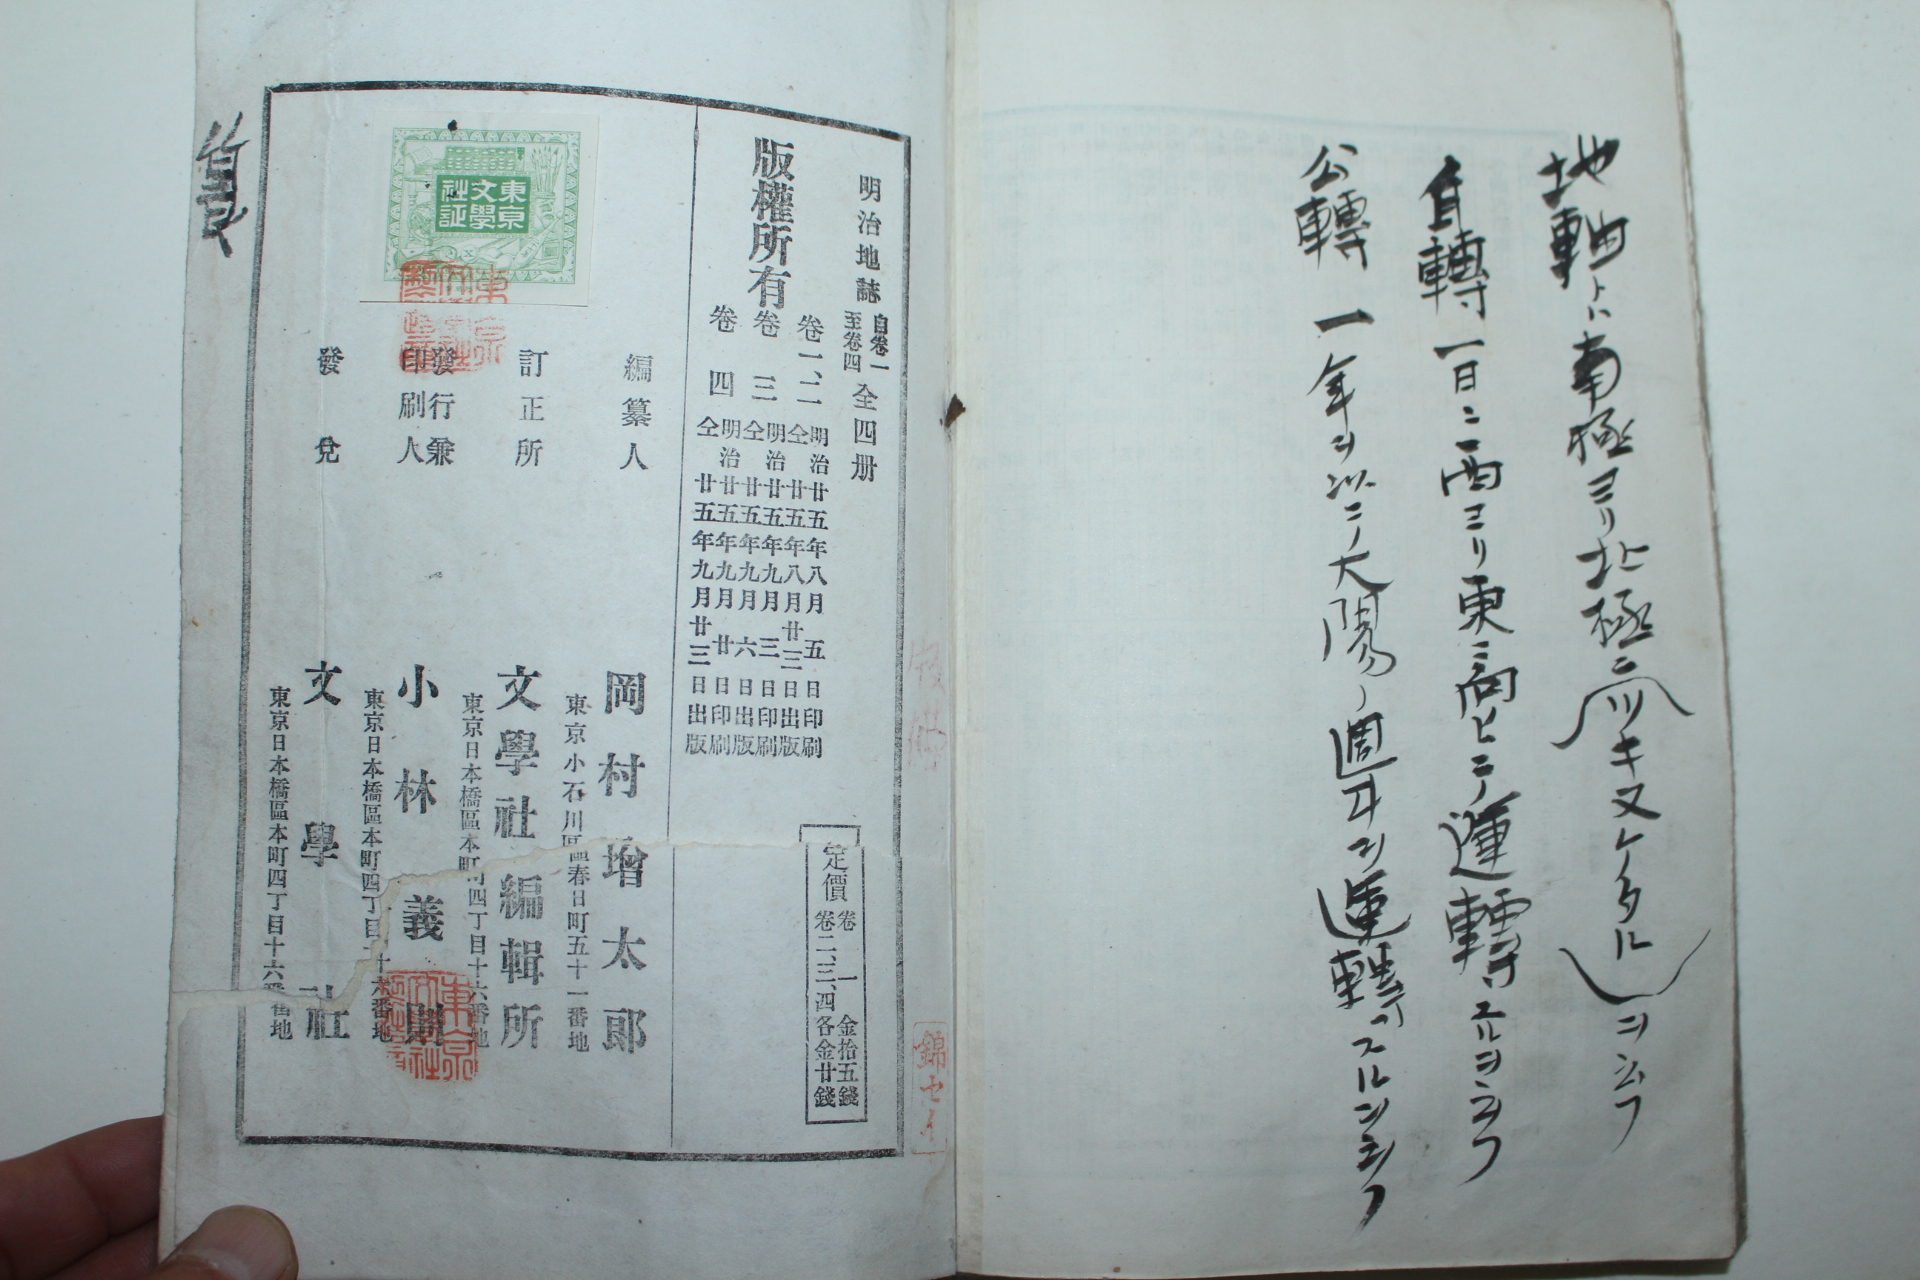 地軸トハ南極ヨリ北極ニツキヌケタルヲ云フ
自轉一日ニ西ヨリ東ニ向ヒテ運轉スルヲ云フ
公轉一年ヲ以テ大陽ノ週リヲ運轉スルヲ云フ
明治地誌 自卷一至卷四 全四册
版權所有
卷一、二 明治廿五年八月五日印刷
仝廿五年八月廿三日出版
卷三 明治廿五年九月三日印刷
仝廿五年九月六日出版
卷四 明治廿五年九月廿日印刷
仝廿五年九月廿三日出版
定價 卷一 金拾五錢
卷二、三、四各金廿錢
編纂人 岡村增太郎
東京小石川區春日町五十一番地
訂正所 文學社編輯所
東京日本橋區本町四丁目十六番地
發行兼印刷人 小林義則
東京日本橋區本町四丁目十六番地
發兌 文學社
東京日本橋區本町四丁目十六番地
東京文學社証